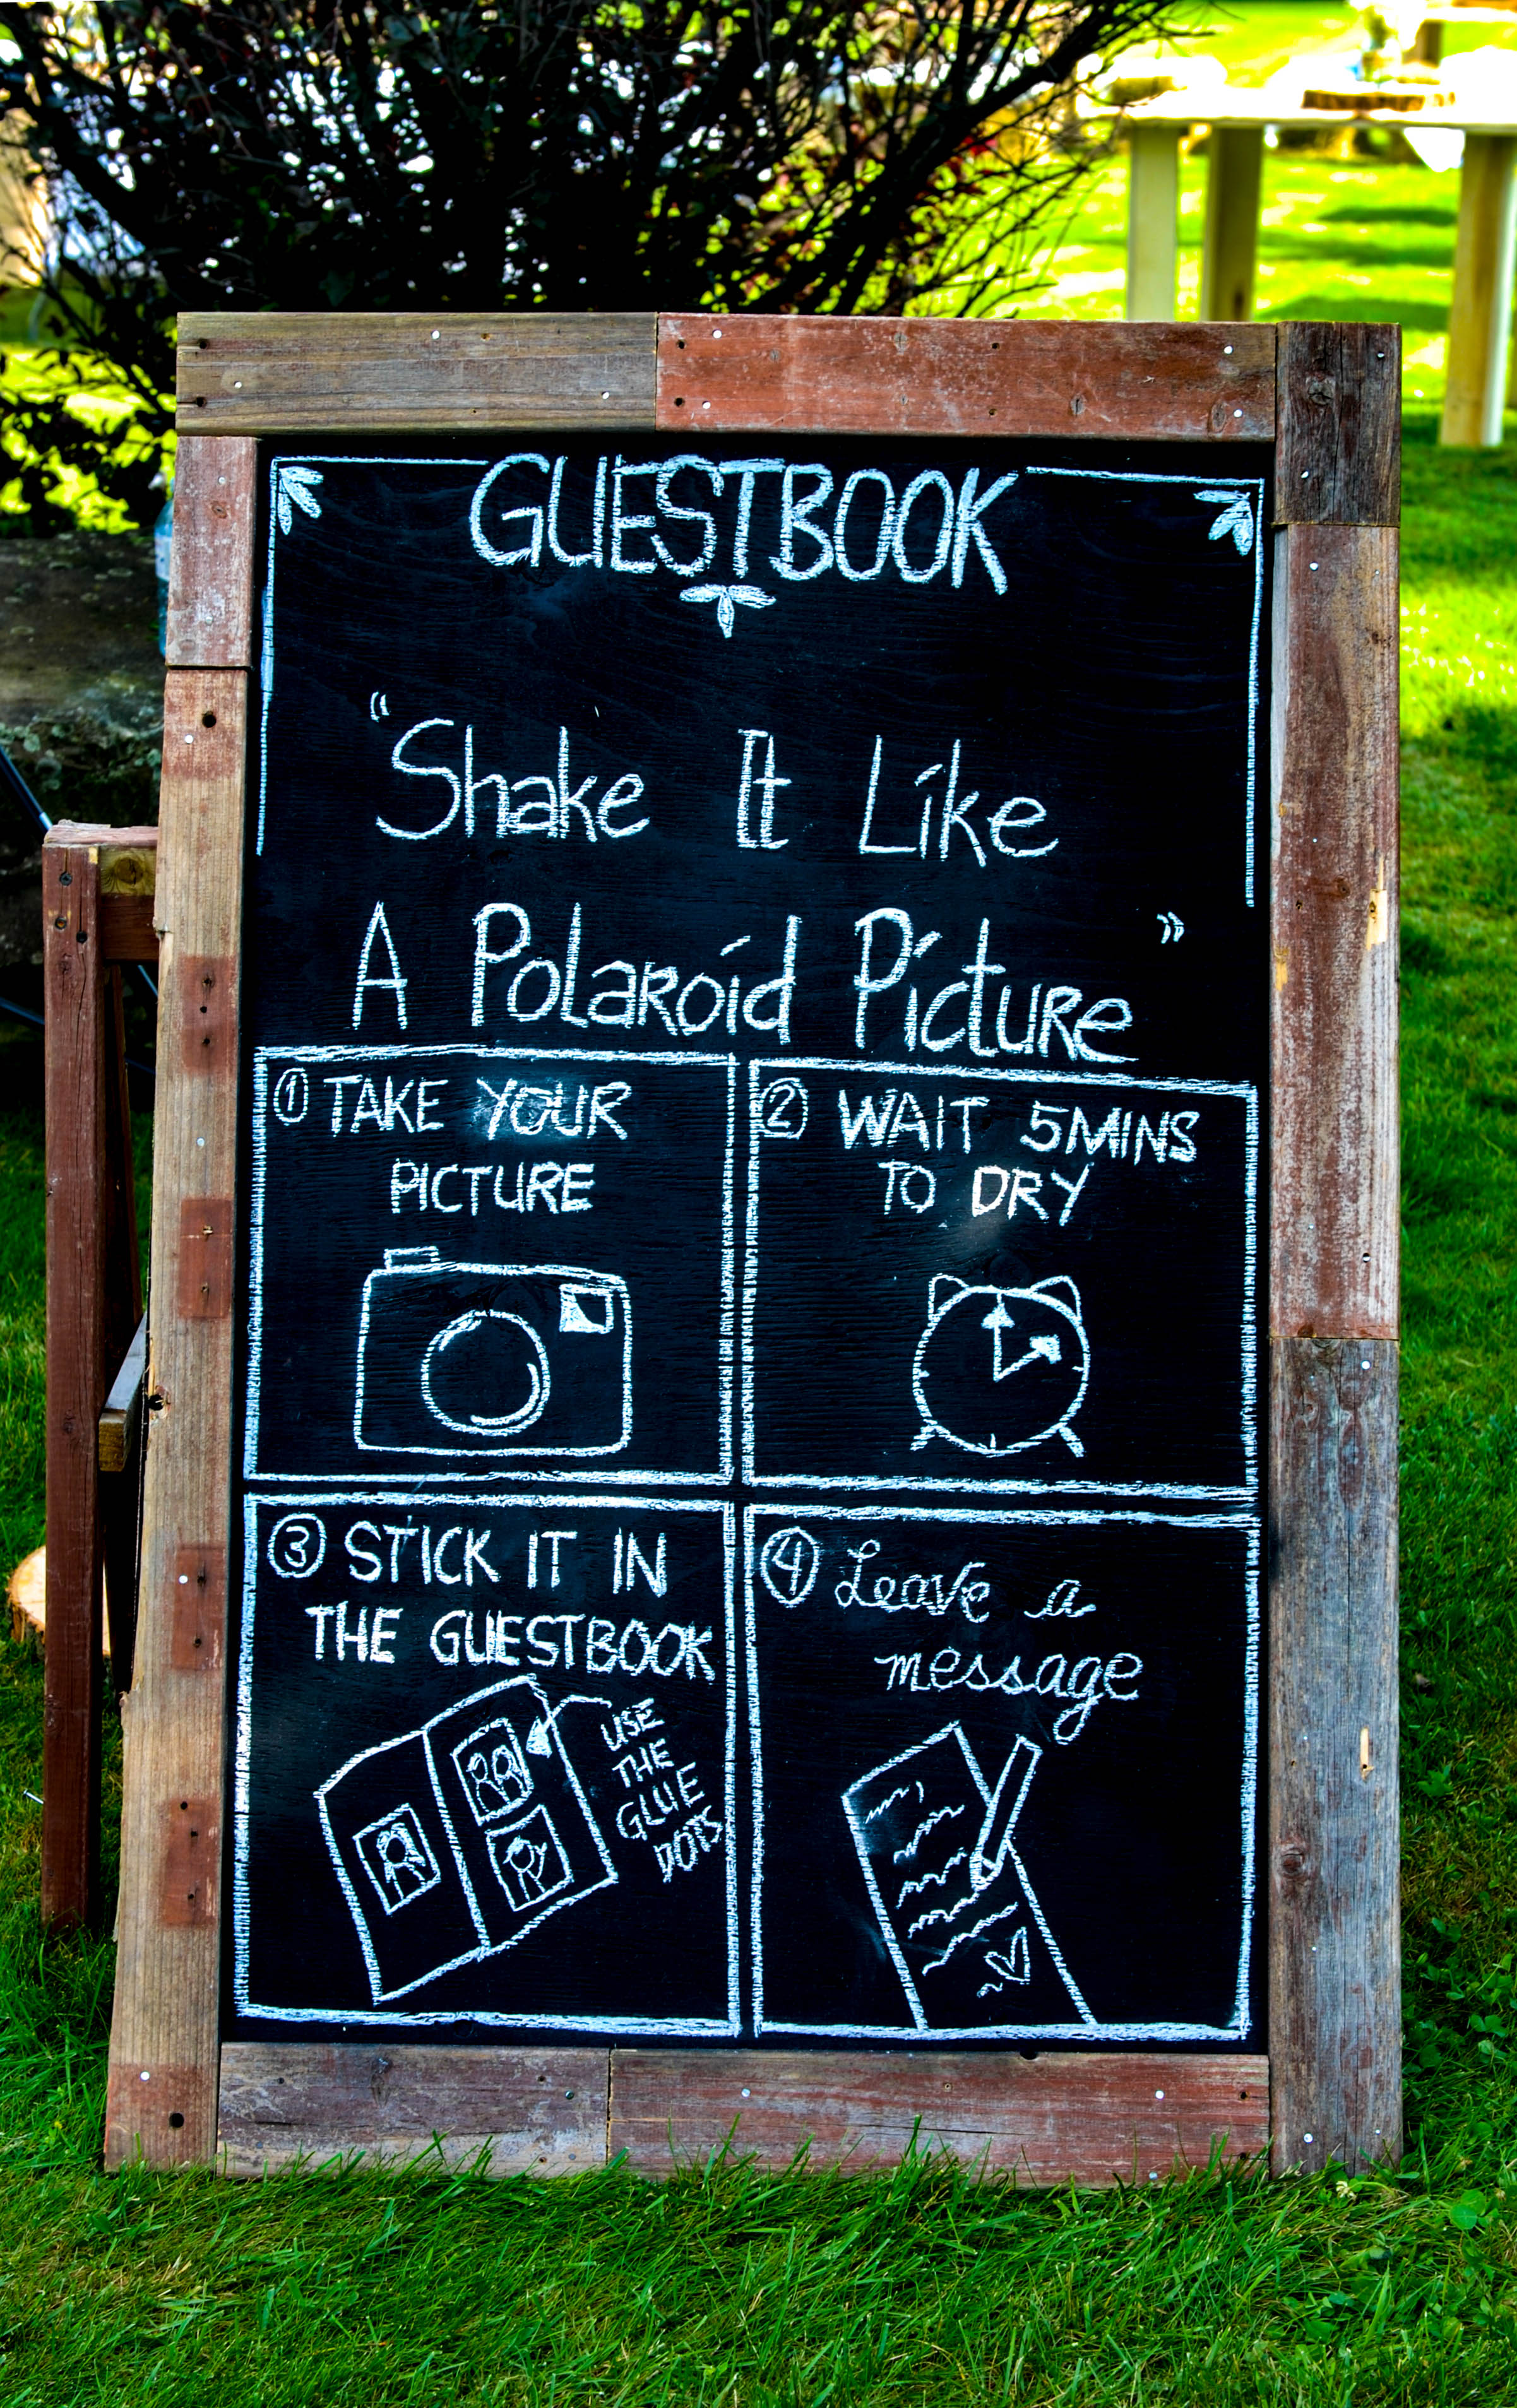 GUESTBOOK
"Shake It Like
A Polaroid Picture"
① TAKE YOUR
PICTURE
② WAIT 5MINS
TO DRY
③ STICK IT IN
THE GUESTBOOK
USE
THE
GLUE
DOTS
④ Leave a
message